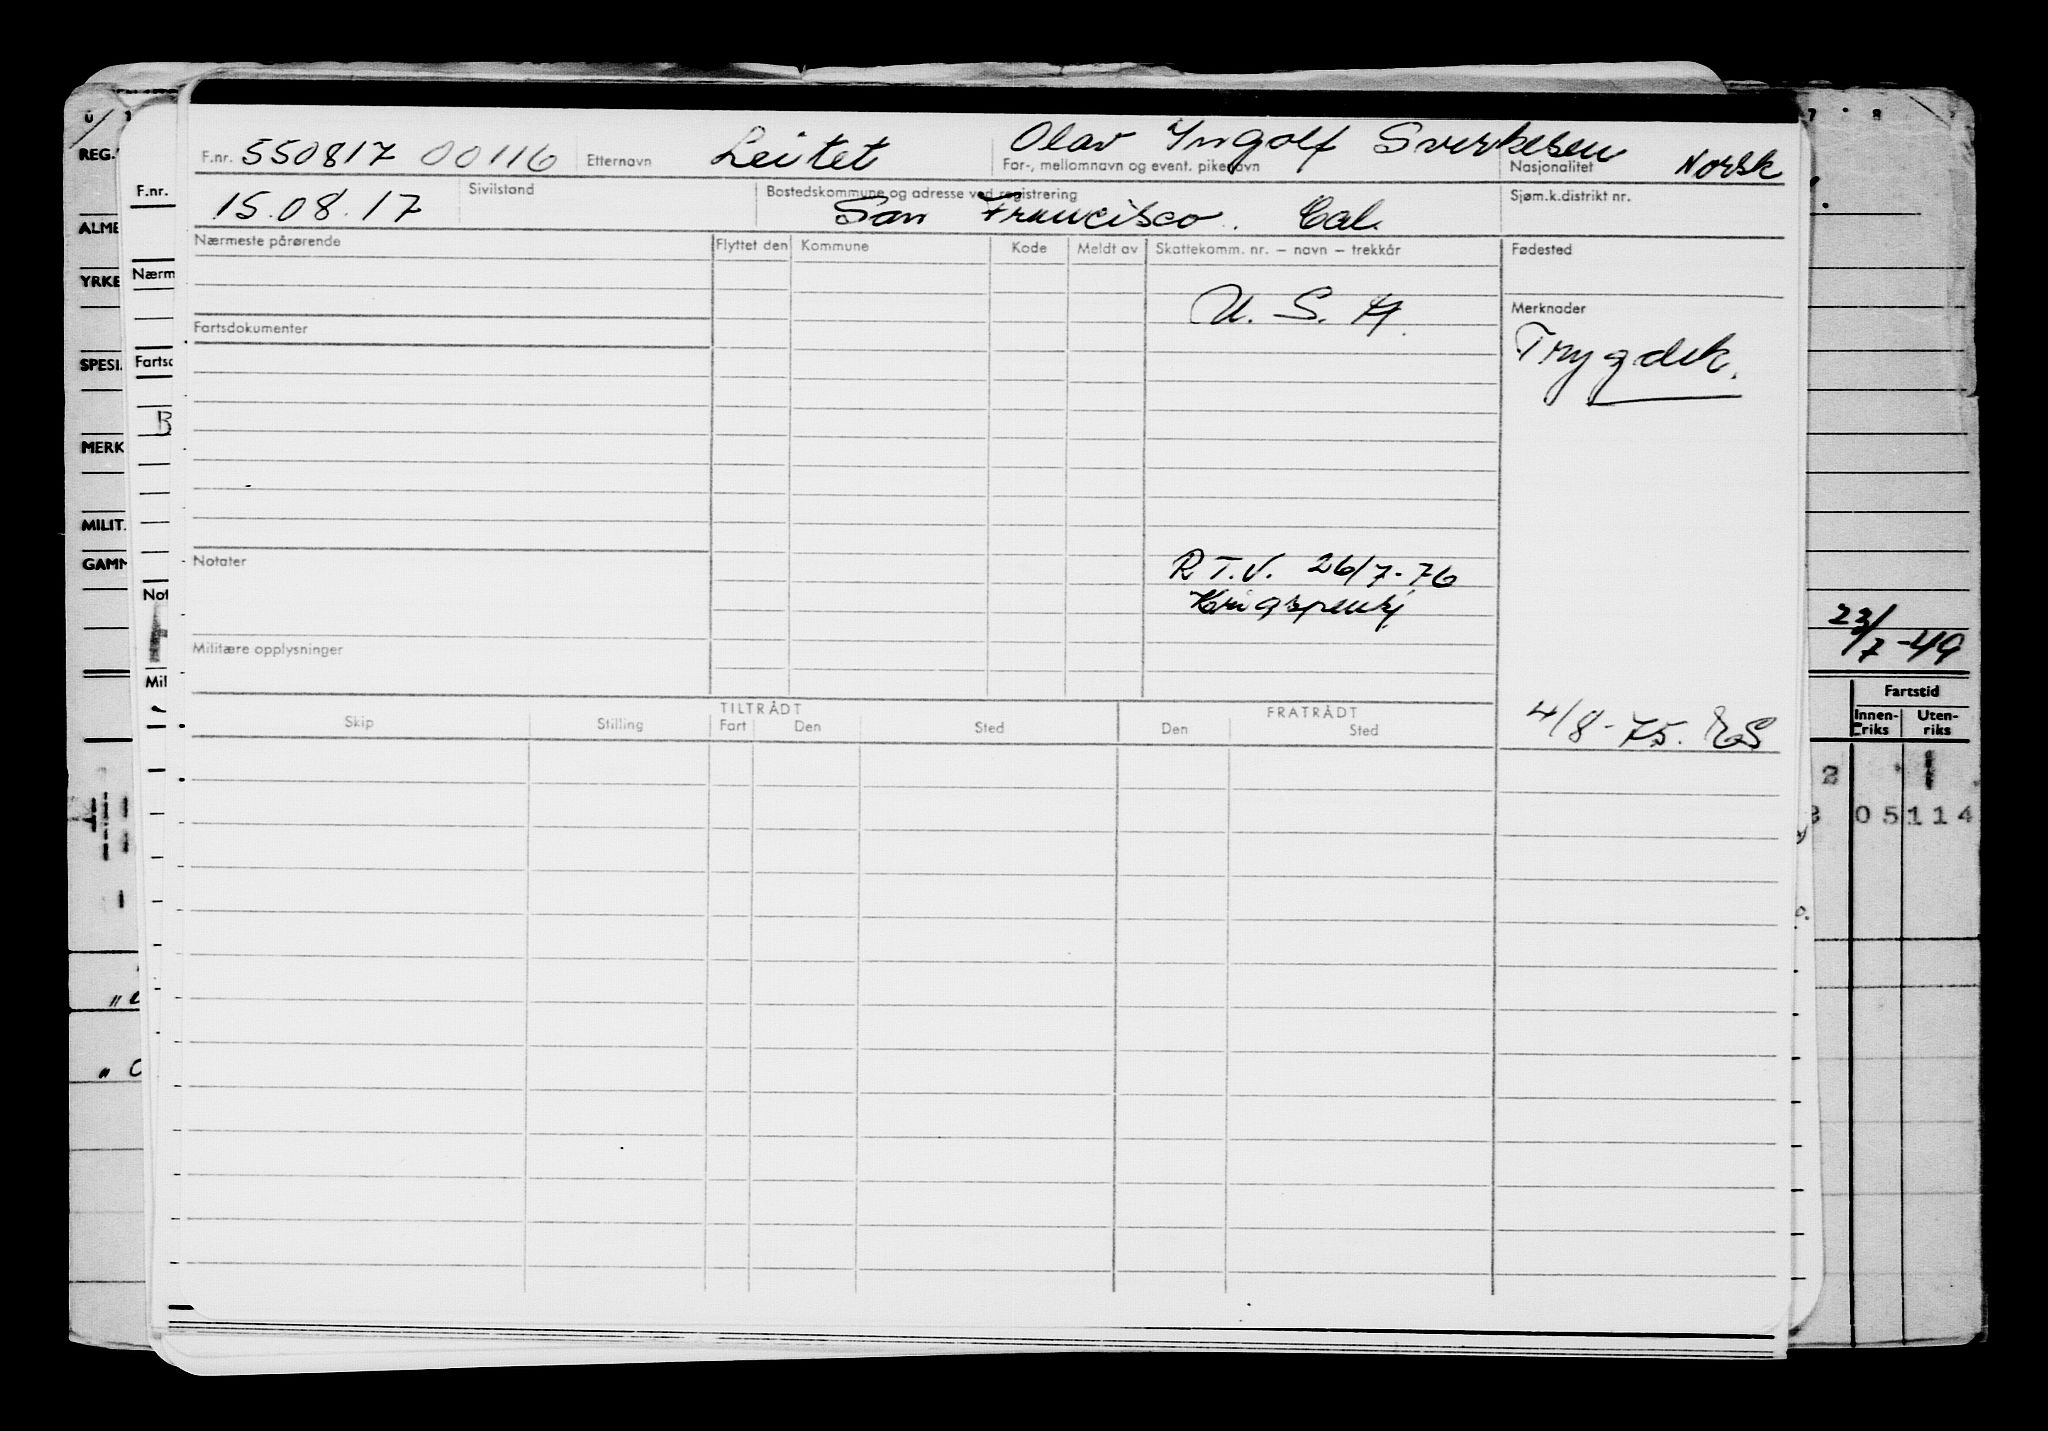 F.nr. 550817 00116 Etternavn Leitet Olav Ingolf Sverkesen For-, mellomnavn og event. pikenavn Nasjonalitet Norsk
15.08.17 Sivilstand Bostedskommune og adresse ved registrering San Francisco. Cal. Sjøm.k.distrikt nr.
Nærmeste pårørende Flyttet den Kommune Kode Meldt av Skattekomm. nr. – navn – trekkår Fødested
U. S. A.
Merknader
Fartsdokumenter
Trygdek.
Notater
R.T.V. 26/7-76
Krigspensj.
Militære opplysninger
TILTRÅDT FRATRÅDT
Skip Stilling Fart Den Sted Den Sted
4/8-75. ES
REG.
F.nr.
ALME
YRKE
Nærm
SPESI
Fartsd
B
MERK
MILIT.
GAMM
Not
Mil
7 8
23/7-49
Fartstid
Innenriks
Utenriks
2
05 114